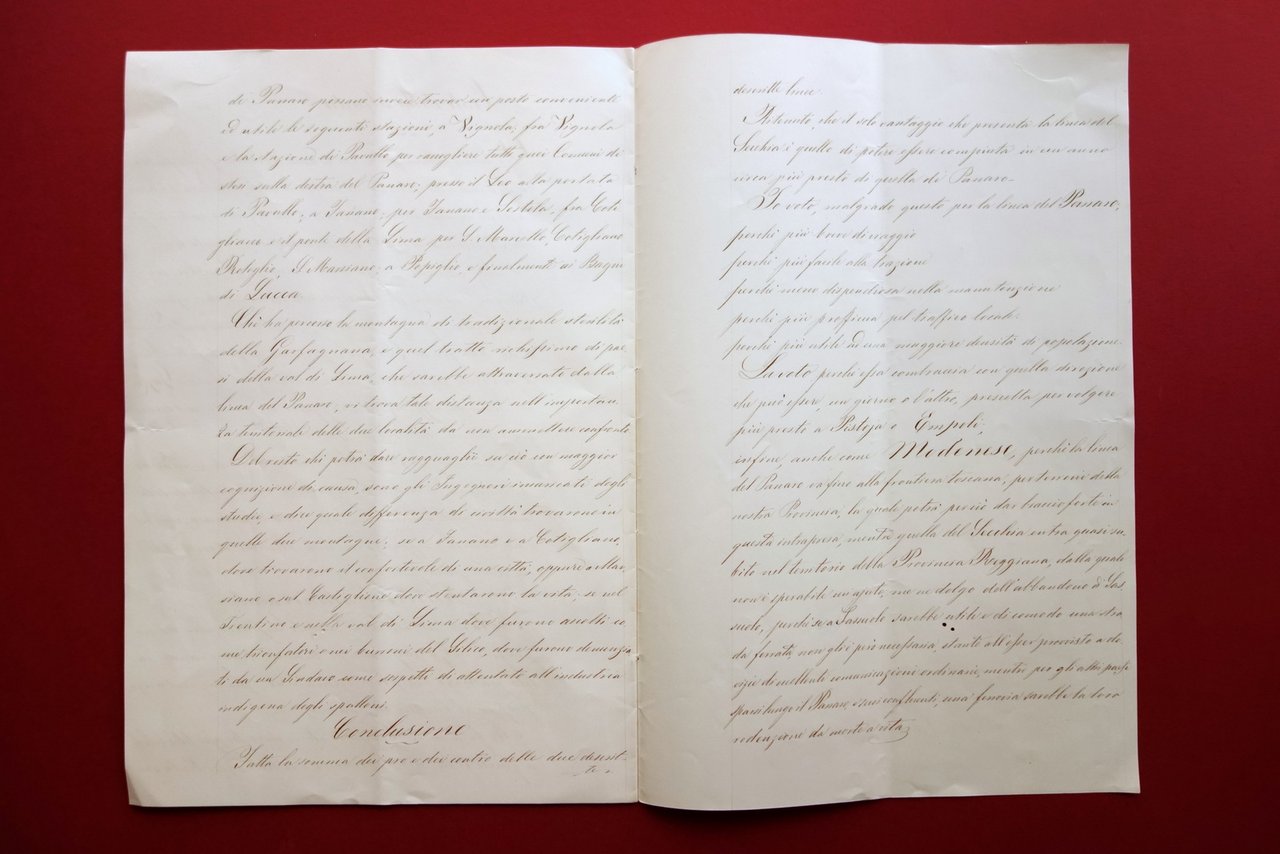 di Panaro possano invece trovar un posto conveniente
ed utile le seguenti stazioni, a Vignola; fra Vignola
e la stazione di Pavullo per raccogliere tutti quei Comuni di
stesi sulla destra del Panaro; presso il Leo alla portata
di Pavullo; a Fanano; per Fanano e Sestola, fra Coti
gliano e il ponte della Lima per S. Marcello, Cotigliano
S. Marciano; a Popiglio, e finalmente ai Bagni
di Lucca.
Chi ha percorso la montagna di tradizionale sterilità
della Garfagnana, e quel tratto ricchissimo di pae
si della val di Lima, che sarebbe attraversato dalla
linea del Panaro, vi trova tale distanza nell'importan
za territoriale delle due località da non ammettere confronto
Del resto chi potrà dare ragguagli su ciò con maggior
cognizione di causa, sono gli Ingegneri incaricati degli
studii, e dire quale differenza di civiltà trovarono in
quelle due montagne; se a Fanano e a Cotigliano,
dove trovarono il confortevole di una città, oppure a
o sul Castiglione dove stentarono la vita; se nel
Trentino e nella val di Lima dove furono accolti co
me trionfatori o nei burroni del Silico, dove furono denunzia
ti da un Sindaco come sospetti di attentato all'industria
indigena degli spalloni.
Conclusione
Fatta la somma dei pro e dei contro delle due descrit
te
descritte linee.
Ritenuto, che il solo vantaggio che presenta la linea del
Secchia è quello di potere essere compiuta in un anno
circa più presto di quella di Panaro
Io voto, malgrado questo per la linea del Panaro;
perchè più breve di viaggio
perchè più facile alla trazione
perchè meno dispendiosa nella manutenzione
perchè più proficua pel traffico locale
perchè più utile ad una maggiore densità di popolazione.
La voto perchè essa combaccia con quella direzione
che può essere, un giorno o l'altro, prescelta per volgere
più presto a Pistoja e Empoli;
infine, anche come Modenese, perchè la linea
del Panaro va fino alla frontiera toscana, per terreni della
nostra Provincia, la quale potrà perciò dar braccio forte in
questa intrapresa, mentre quella del Secchia entra quasi su
bito nel territorio della Provincia Reggiana, dalla quale
non è sperabile un ajuto, me ne dolgo dell'abbandono di Sas
suolo, perchè se a Sassuolo sarebbe utile e di comodo una stra
da ferrata, non gli è però necessaria, stante all'esser provvisto a do
vizie di eccellenti comunicazioni ordinarie, mentre per gli altri paesi
sparsi lungo il Panaro e suoi confluenti, una ferrovia sarebbe la loro
redenzione da morte a vita;